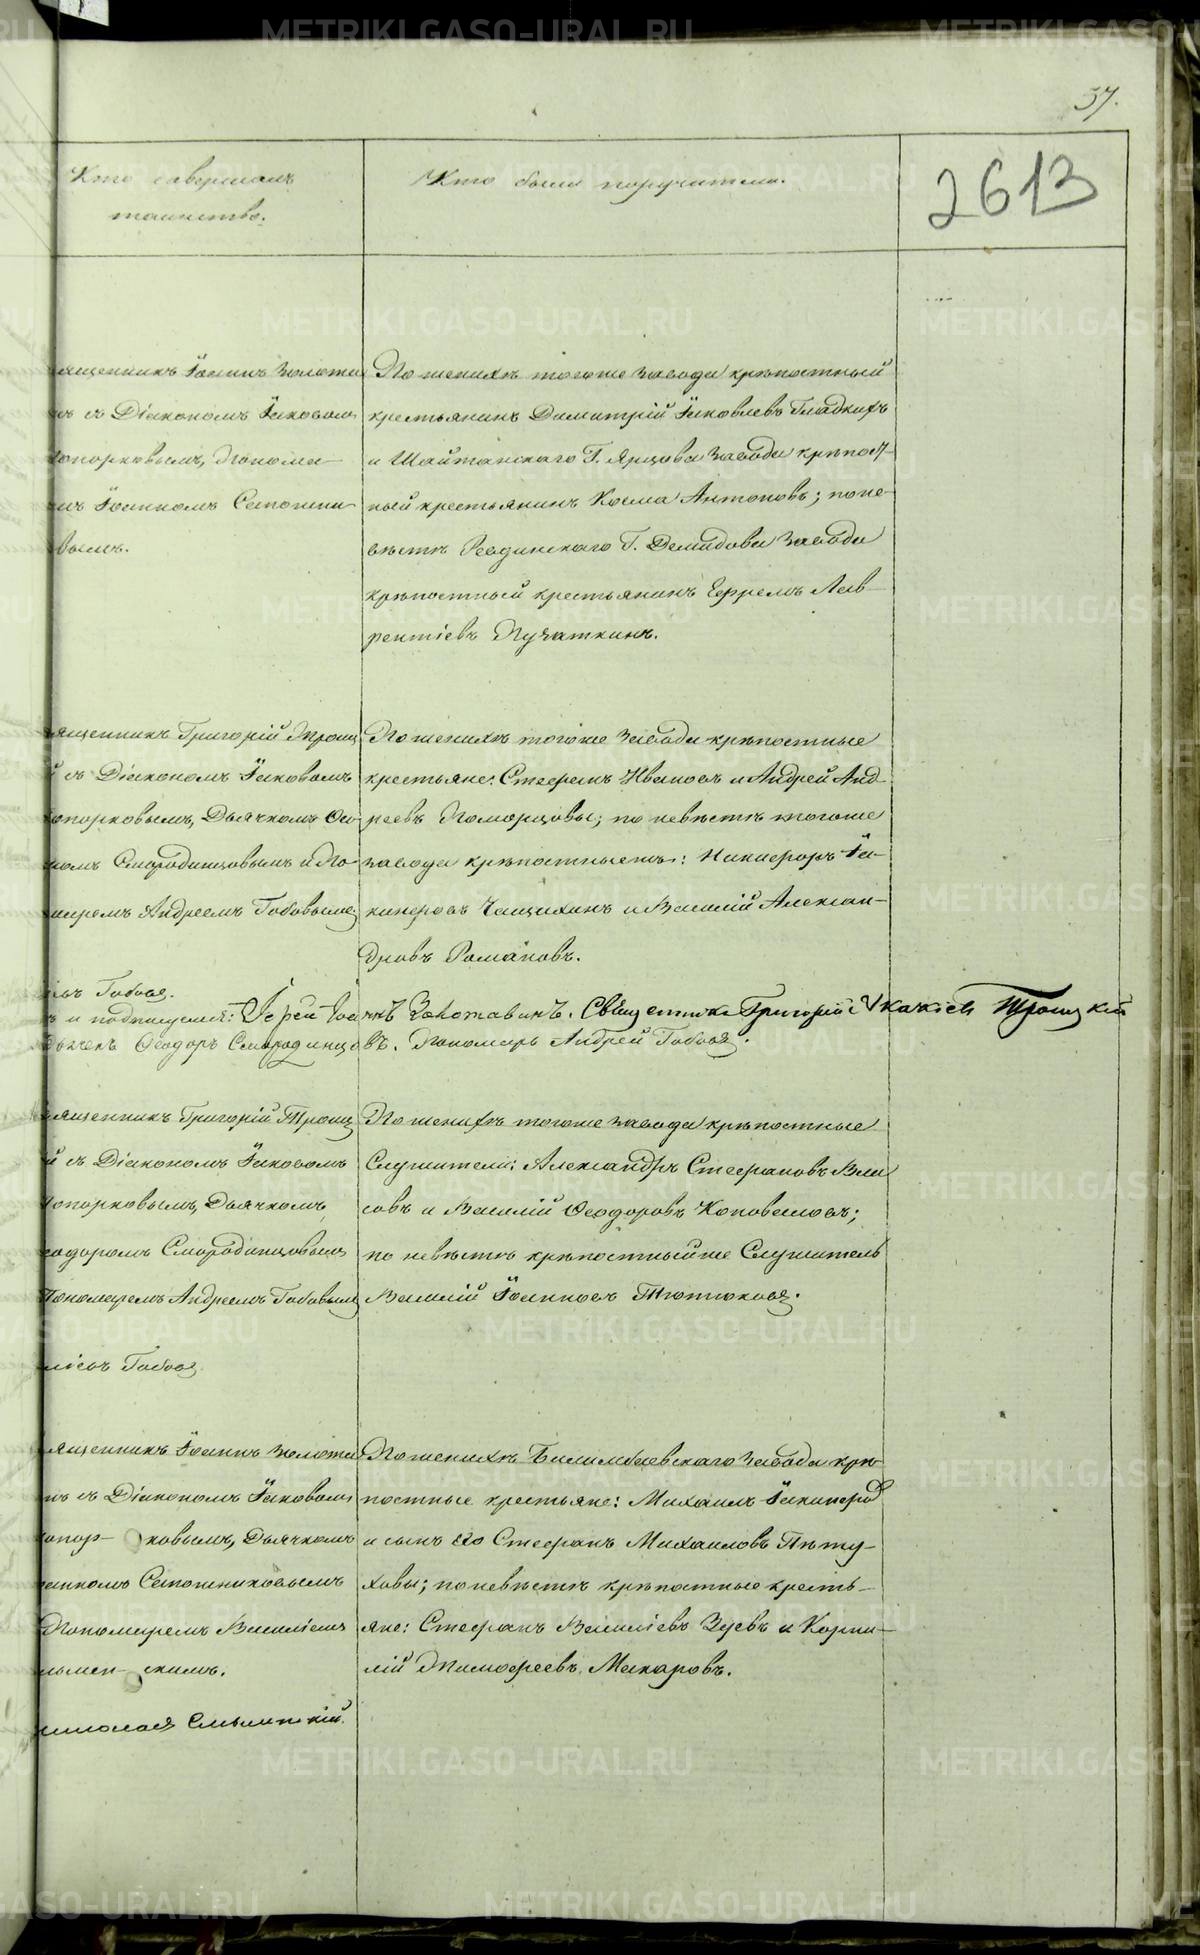 37.
Кто совершалъ
таинство.
Кто были поручители.
2613
ященникъ Іоаннъ Золота
въ съ Діакономъ Іаковомъ
Топорковымъ, Понома-
мъ Іоанномъ Сапожни-
вымъ.
По женихѣ тогоже завода крѣпостный
крестьянинъ Димитрій Іаковлевъ Гладкихъ
и Шайтанскаго Г. Ярцова завода крѣпост-
ный крестьянинъ Косма Антоновъ; по не-
вѣстѣ Ревдинскаго Г. Демидова завода
крѣпостный крестьянинъ Ефремъ Лав-
рентіевъ Пузаткинъ.
ященникъ Григорій Троиц
й съ Діакономъ Іаковомъ
опорковымъ, Дьячкомъ Ѳео-
ромъ Смородинцовымъ и По-
маремъ Андреемъ Бабовымъ
По женихѣ тогоже завода крѣпостные
крестьяне: Стефанъ Ивановъ и Андрей Анд-
реевъ Поморцовы; по невѣстѣ тогоже
завода крѣпостные: Никифоръ Ни-
кифоровъ Чащихинъ и Василій Алексан-
дровъ Романовъ.
и подписуемся: Іерей Іоаннъ Золотавинъ. Священникъ Григорій Троицкій
Дьячекъ Ѳеодоръ Смородинцовъ. Пономарь Андрей Бабовъ.
ященникъ Григорій Троиц
й съ Діакономъ Іаковомъ
Топорковымъ, Дьячкомъ
еодоромъ Смородинцовымъ
Пономаремъ Андреемъ Бабовымъ
По женихѣ тогоже завода крѣпостные
Служители: Александръ Стефановъ Вла
совъ и Василій Ѳеодоровъ Коноваловъ;
по невѣстѣ крѣпостныйже Служитель
Василій Іоанновъ Тютюковъ.
ященникъ Іоаннъ Золота
въ съ Діакономъ Іаковомъ
опор-ковымъ, Дьячкомъ
оанномъ Сапожниковымъ
Пономаремъ Василіемъ
По женихѣ Билимбаевскаго завода крѣ-
постные крестьяне: Михаилъ Никифоровъ
и сынъ его Стефанъ Михаиловъ Пѣту-
ховы; по невѣстѣ крѣпостные кресть-
яне: Стефанъ Василіевъ Зуевъ и Корни-
лій Тимофеевъ Макаровъ.
METRIKI.GASO-URAL.RU